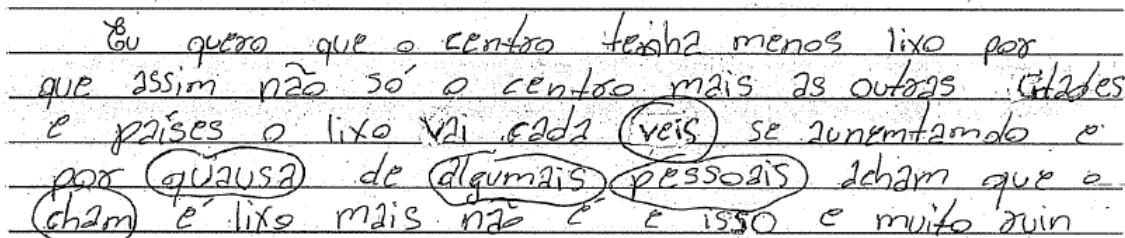 Eu quero que o centro tenha menos lixo por
que assim não só o centro mais as outras cidades
e países o lixo vai cada veis se aunemtamdo e
por quausa de algumais pessoais acham que o
cham é lixo mais não é e isso e muito ruin